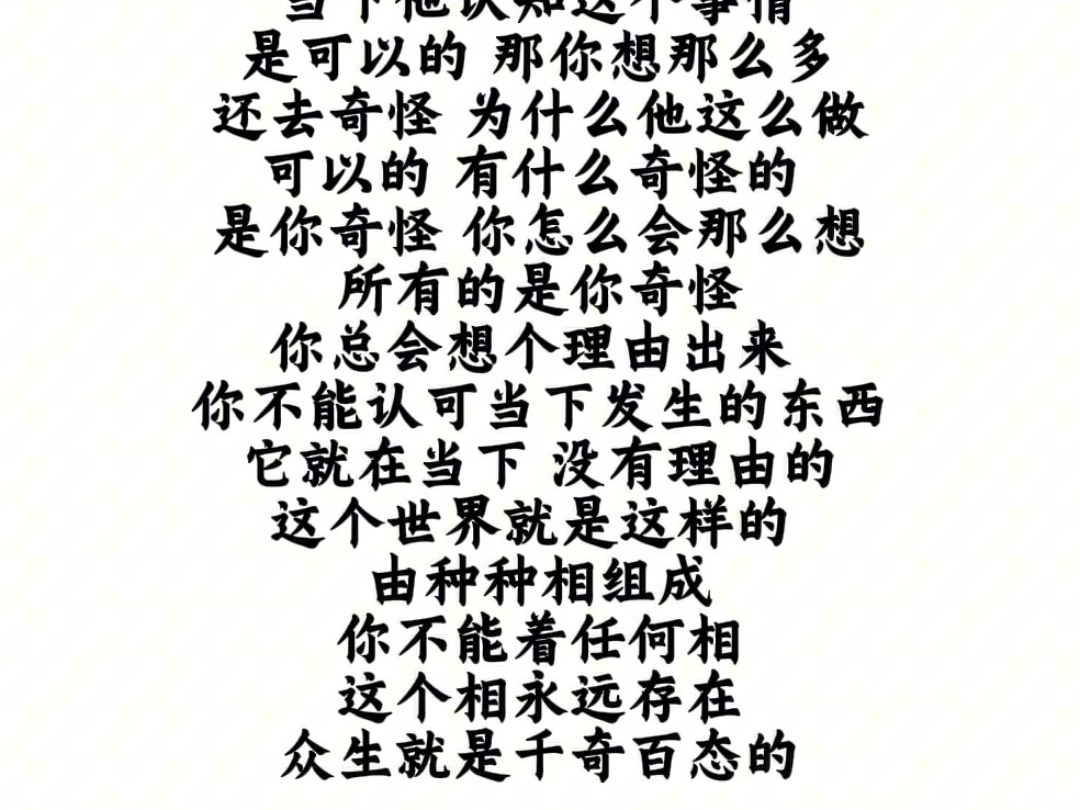 当下他认知这个事情
是可以的 那你想那么多
还去奇怪 为什么他这么做
可以的 有什么奇怪的
是你奇怪 你怎么会那么想
所有的是你奇怪
你总会想个理由出来
你不能认可当下发生的东西
它就在当下 没有理由的
这个世界就是这样的
由种种相组成
你不能着任何相
这个相永远存在
众生就是千奇百态的